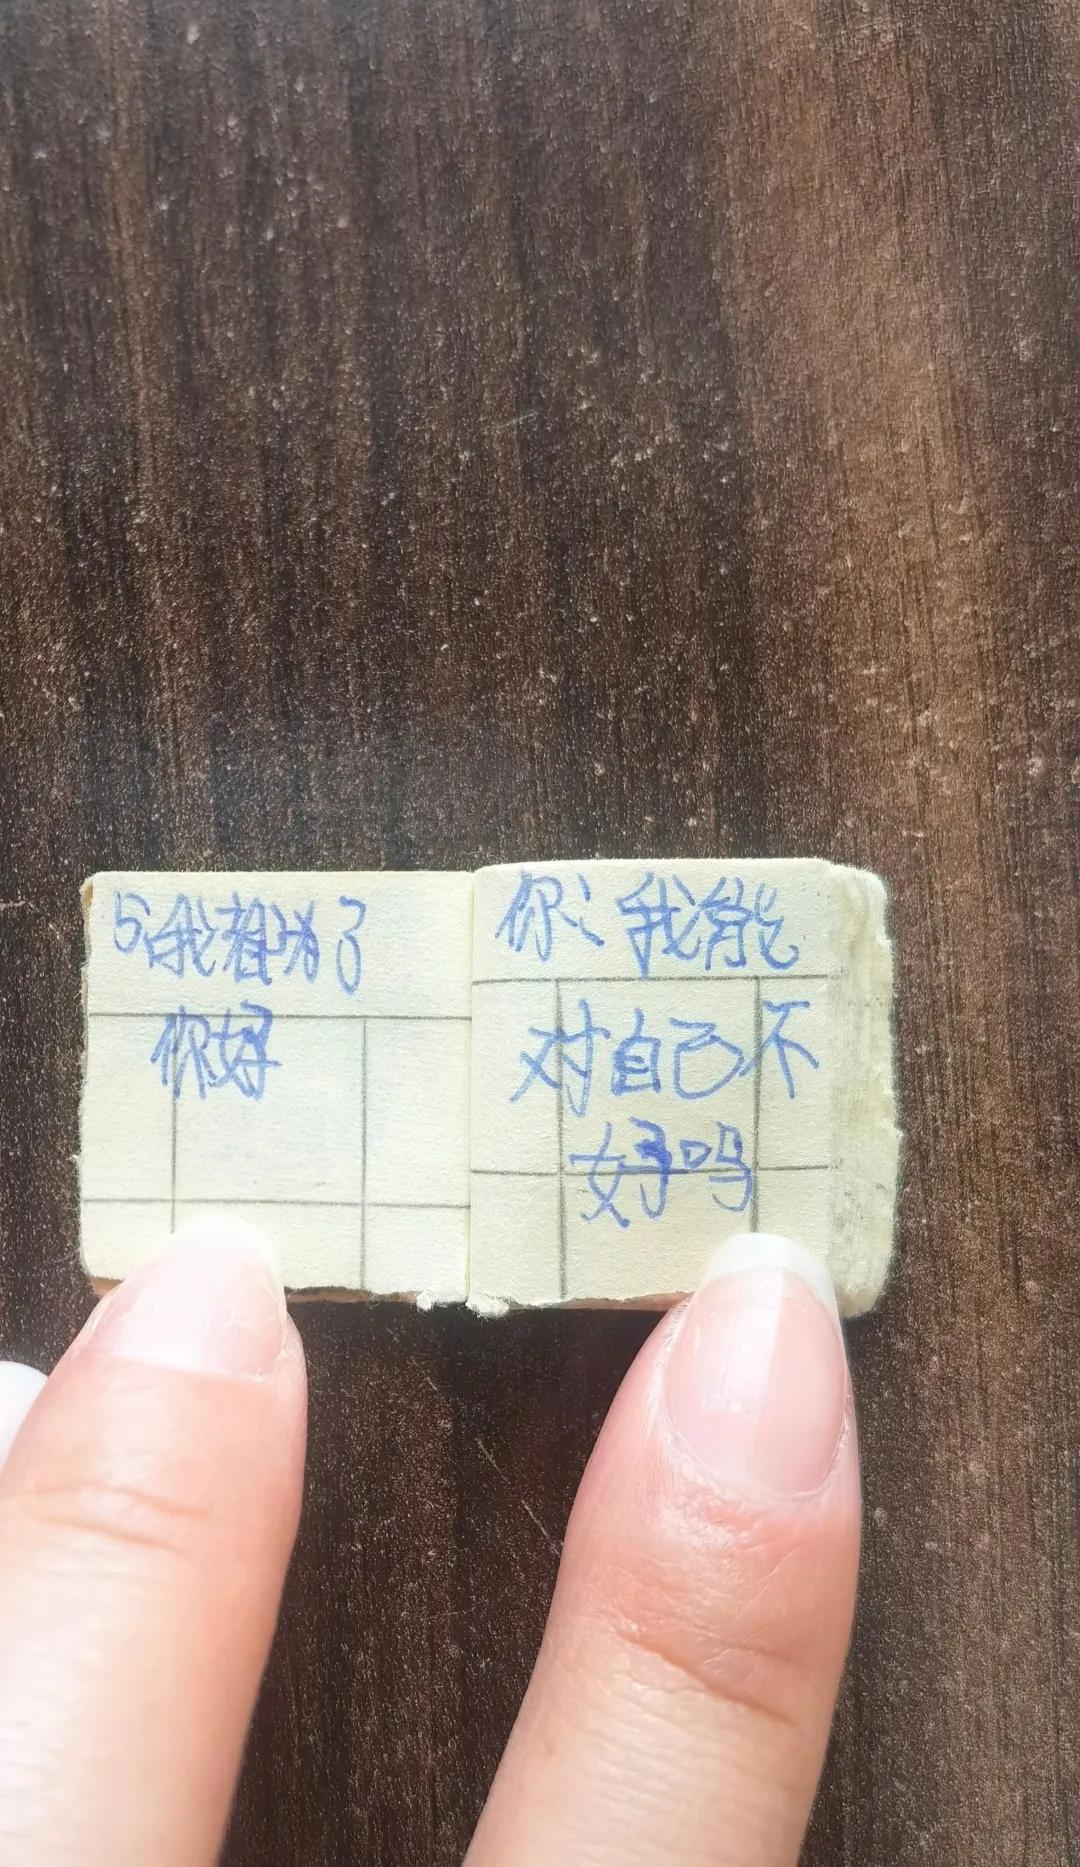 5、我都为了
你好
你：我能
对自己不
好吗